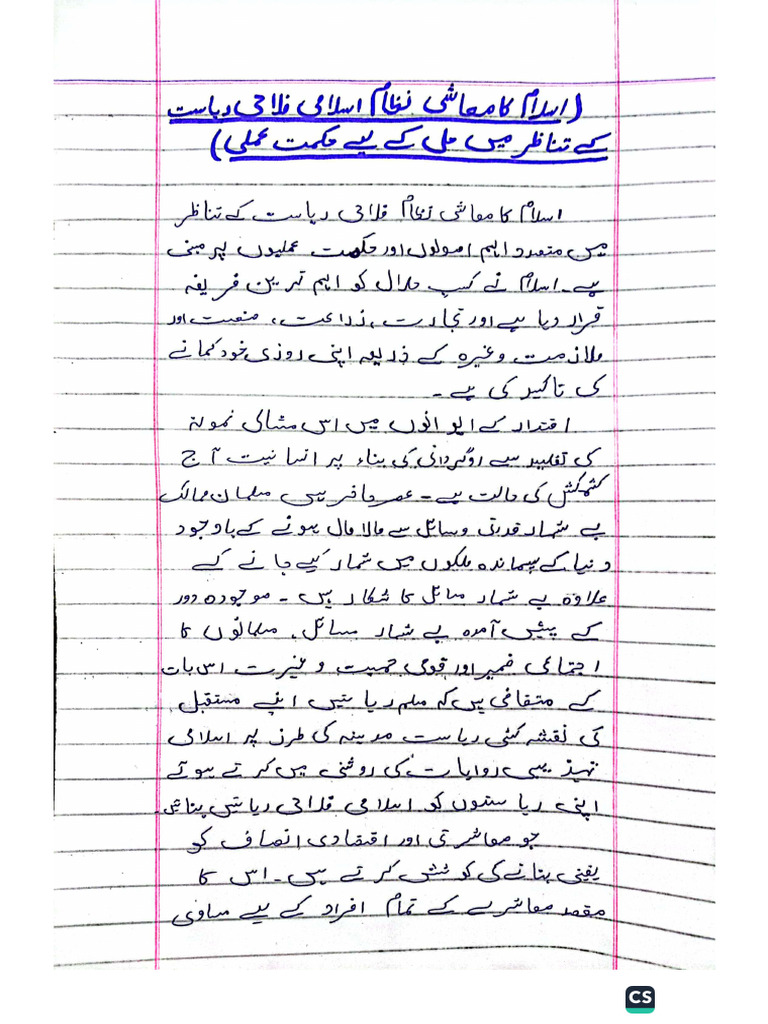 (اسلام کا معاشی نظام اسلامی فلاحی ریاست
کے تناظر میں حل کے لیے حکمت عملی)
اسلام کا معاشی نظام فلاحی ریاست کے تناظر
میں متعدد اہم اصولوں اور حکمت عملیوں پر مبنی
ہے۔ اسلام نے کسب حلال کو اہم ترین فریضہ
قرار دیا ہے اور تجارت، زراعت، صنعت اور
ملازمت وغیرہ کے ذریعہ اپنی روزی خود کمانے
کی تاکید کی ہے۔
اقتدار کے ایوانوں میں اس مثالی نمونۂ
کی تقلید سے روگردانی کی بناء پر انسانیت آج
کشمکش کی حالت ہے۔ عصر حاضر میں مسلمان ممالک
بے شمار قدرتی وسائل سے مالا مال ہونے کے باوجود
دنیا کے پسماندہ ملکوں میں شمار کیے جانے کے
علاوہ بے شمار مسائل کا شکار ہیں۔ موجودہ دور
کے پیش آمدہ بے شمار مسائل، مسلمانوں کا
اجتماعی ضمیر اور قومی حمیت و غیرت اس بات
کے متقاضی ہیں کہ مسلم ریاستیں اپنے مستقبل
کی نقشہ کشی ریاست مدینہ کی طرز پر اسلامی
تہذیبی روایات کی روشنی میں کرتے ہوئے
اپنی ریاستوں کو اسلامی فلاحی ریاستیں بنائیں
جو معاشرتی اور اقتصادی انصاف کو
یقینی بنانے کی کوشش کرتے ہیں۔ اس کا
مقصد معاشرے کے تمام افراد کے لیے مساوی
CS